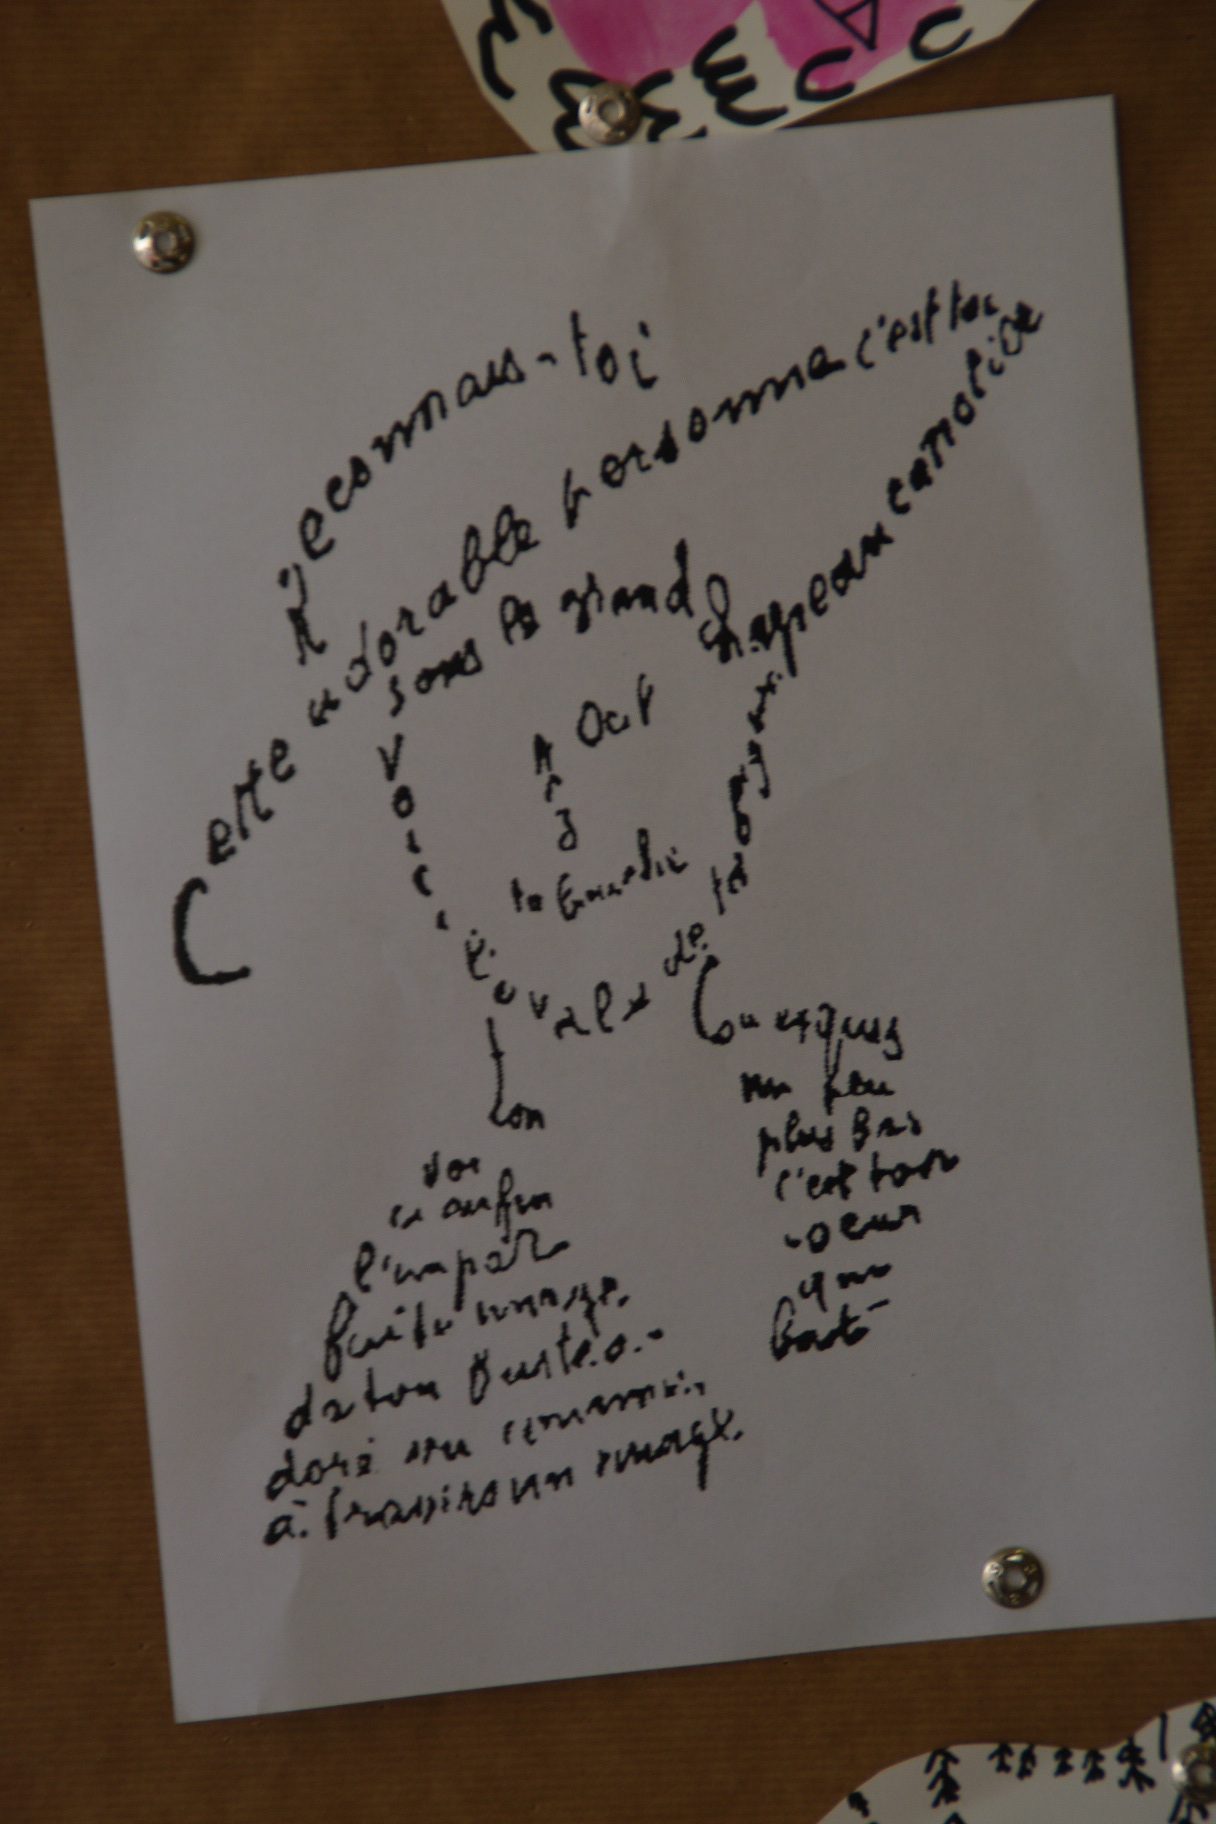 Reconnais-toi
Cette adorable personne c'est toi
sous le grand chapeau canotier
Oeil
Nez
ta bouche
Voici
l'ovale de
ta figure
ton cou exquis
Voi
ci enfin
l'impar
faite image
de ton buste a.
doré vu comme
à travers un nuage
un peu
plus bas
c'est ton
coeur
qui
bat